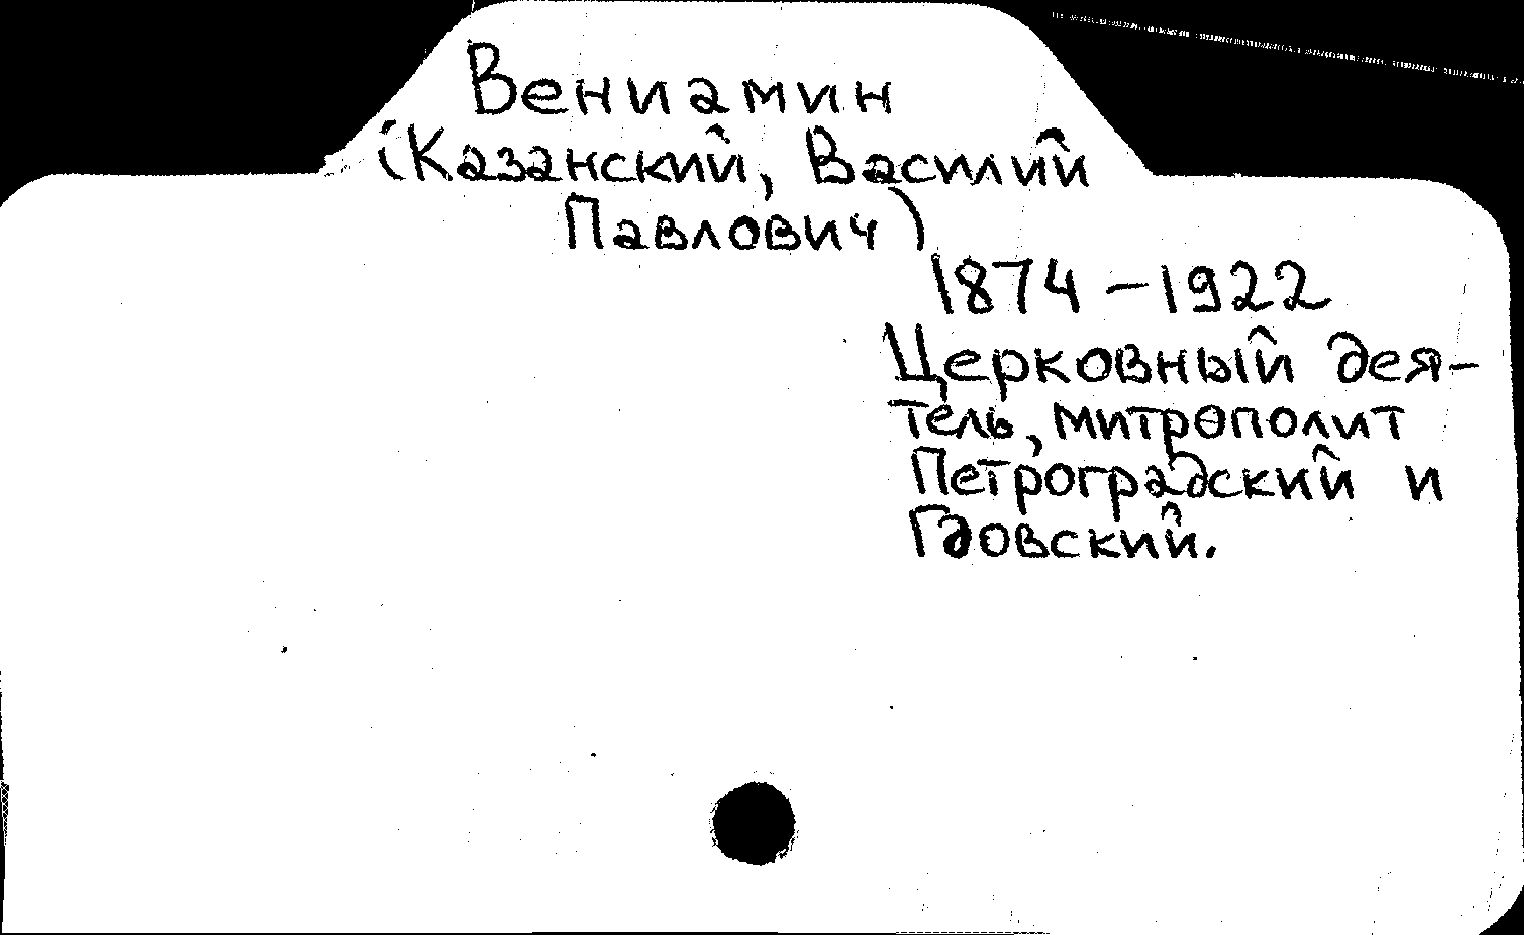 Вениамин
(Казанский, Василий
Павлович)
1874 – 1922
Церковный дея-
тель, митрополит
Петроградский и
Гдовский.